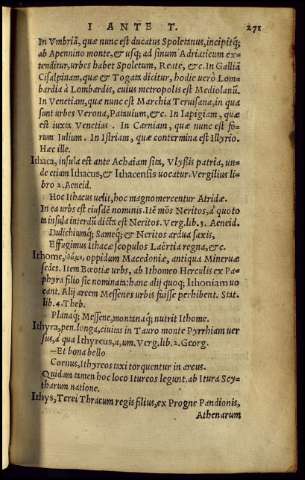 I ANTE T. 271
In Vmbriã, quæ nunc est ducatus Spoletanus, incipitq́;
ab Apennino monte, & usq; ad sinum Adriaticum ex-
tenditur, urbes habet Spoletum, Reate, &c. In Galliã
Cisalpinam, quæ & Togata dicitur, hodie uerò Lom-
bardia à Lombardis, cuius metropolis est Mediolanũ.
In Venetiam, quæ nunc est Marchia Teruisana, in qua
sunt urbes Verona, Patauium, &c. In Iapigiam, quæ
est iuxta Venetias. In Carniam, quæ nunc est fo-
rum Iulium. In Istriam, quæ contermina est Illyrio.
Hæc ille.
Ithaca, insula est ante Achaiam sita, Vlyssis patria, un-
de etiam Ithacus, & Ithacensis uocatur. Vergilius li-
bro 2. Aeneid.
Hoc Ithacus uelit, hoc magno mercentur Atridæ.
In ea urbs est eiusdẽ nominis. Itẽ mõs Neritos, à quo to
ta insula interdũ dicta est Neritos. Verg. lib. 3. Aeneid.
Dulichiumq́; Sameq́; & Neritos ardua saxis,
Effugimus Ithacæ scopulos Laërtia regna, &c.
Ithome, oppidum Macedoniæ, antiqua Mineruæ
sedes. Item Bœotiæ urbs, ab Ithomeo Herculis ex Pa-
phyra filio sic nominata: hanc alij quoq; Ithoniam uo
cant. Alij arcem Messenes urbis fuisse perhibent. Stat.
lib. 4. Theb.
Planaq́; Messene, montanaq́; nutrit Ithome.
Ithyra, pen. longa, ciuius in Tauro monte Pyrrhiam uer
sus, à qua Ithyreus, a, um. Verg. lib. 2. Georg.
—Et bona bello
Cornus, Ithyreos taxi torquentur in arcus.
Quidam tamen hoc loco Itureos legunt, ab Itura Scy-
tharum natione.
Ithys, Terei Thracum regis filius, ex Progne Pandionis,
Athenarum